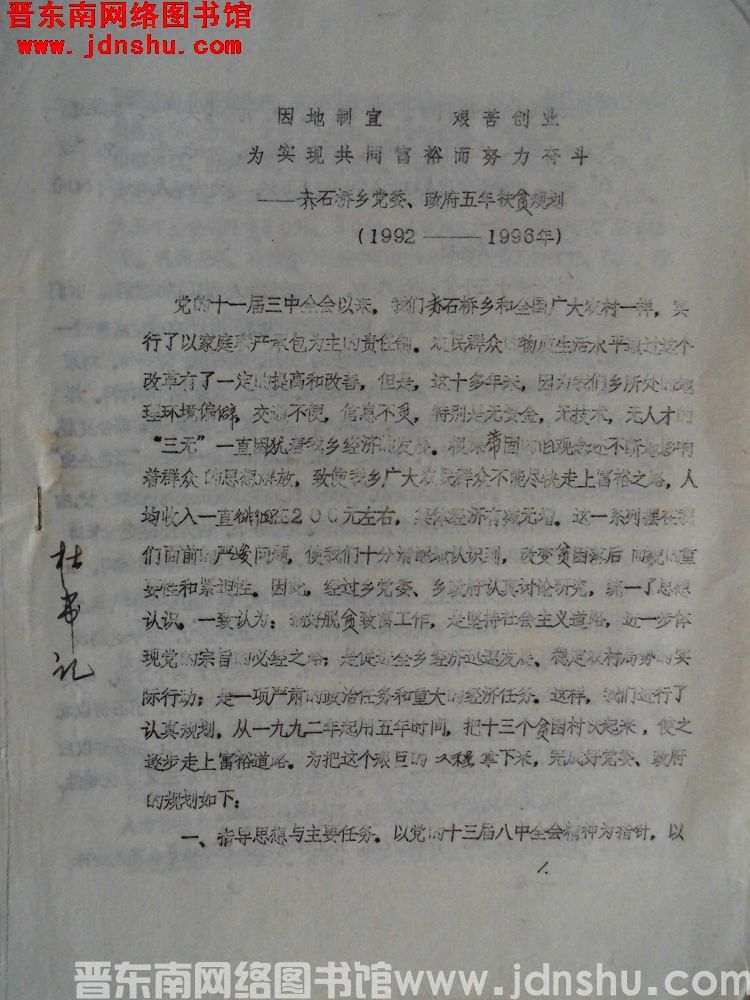 晋东南网络图书馆
www.jdnshu.com
因地制宜 艰苦创业
为实现共同富裕而努力奋斗
——赤石桥乡党委、政府五年扶贫规划
(1992——1996年)
党的十一届三中全会以来，我们赤石桥乡和全国广大农村一样，实
行了以家庭联产承包为主的责任制。农民群众的物质生活水平通过这个
改革有了一定的提高和改善，但是，这十多年来，因为我们乡所处的地
理环境偏僻，交通不便，信息不灵，特别是无资金，无技术，无人才的
“三无”一直困犹着我乡经济的发展。根深帝固的旧观念还不断地影响
着群众的思想解放，致使我乡广大农民群众不能尽快走上富裕之路，人
均收入一直徘徊在200元左右，集体经济有减无增。这一系列摆在我
们面前的严峻问题，使我们十分清醒地认识到，改变贫困落后面貌的重
要性和紧迫性。因此，经过乡党委、乡政府认真讨论研究，统一了思想
认识。一致认为：搞好脱贫致富工作，是坚持社会主义道路，进一步体
现党的宗旨的必经之路；是促进全乡经济迅速发展、稳定农村局势的实
际行动；是一项严肃的政治任务和重大的经济任务。这样，我们进行了
认真规划，从一九九二年起用五年时间，把十三个贫困村扶起来，使之
逐步走上富裕道路。为把这个艰巨的工程拿下来，完成好党委、政府
的规划如下：
一、指导思想与主要任务。以党的十三届八中全会精神为指针，以
1.
杜书记
晋东南网络图书馆www.jdnshu.com